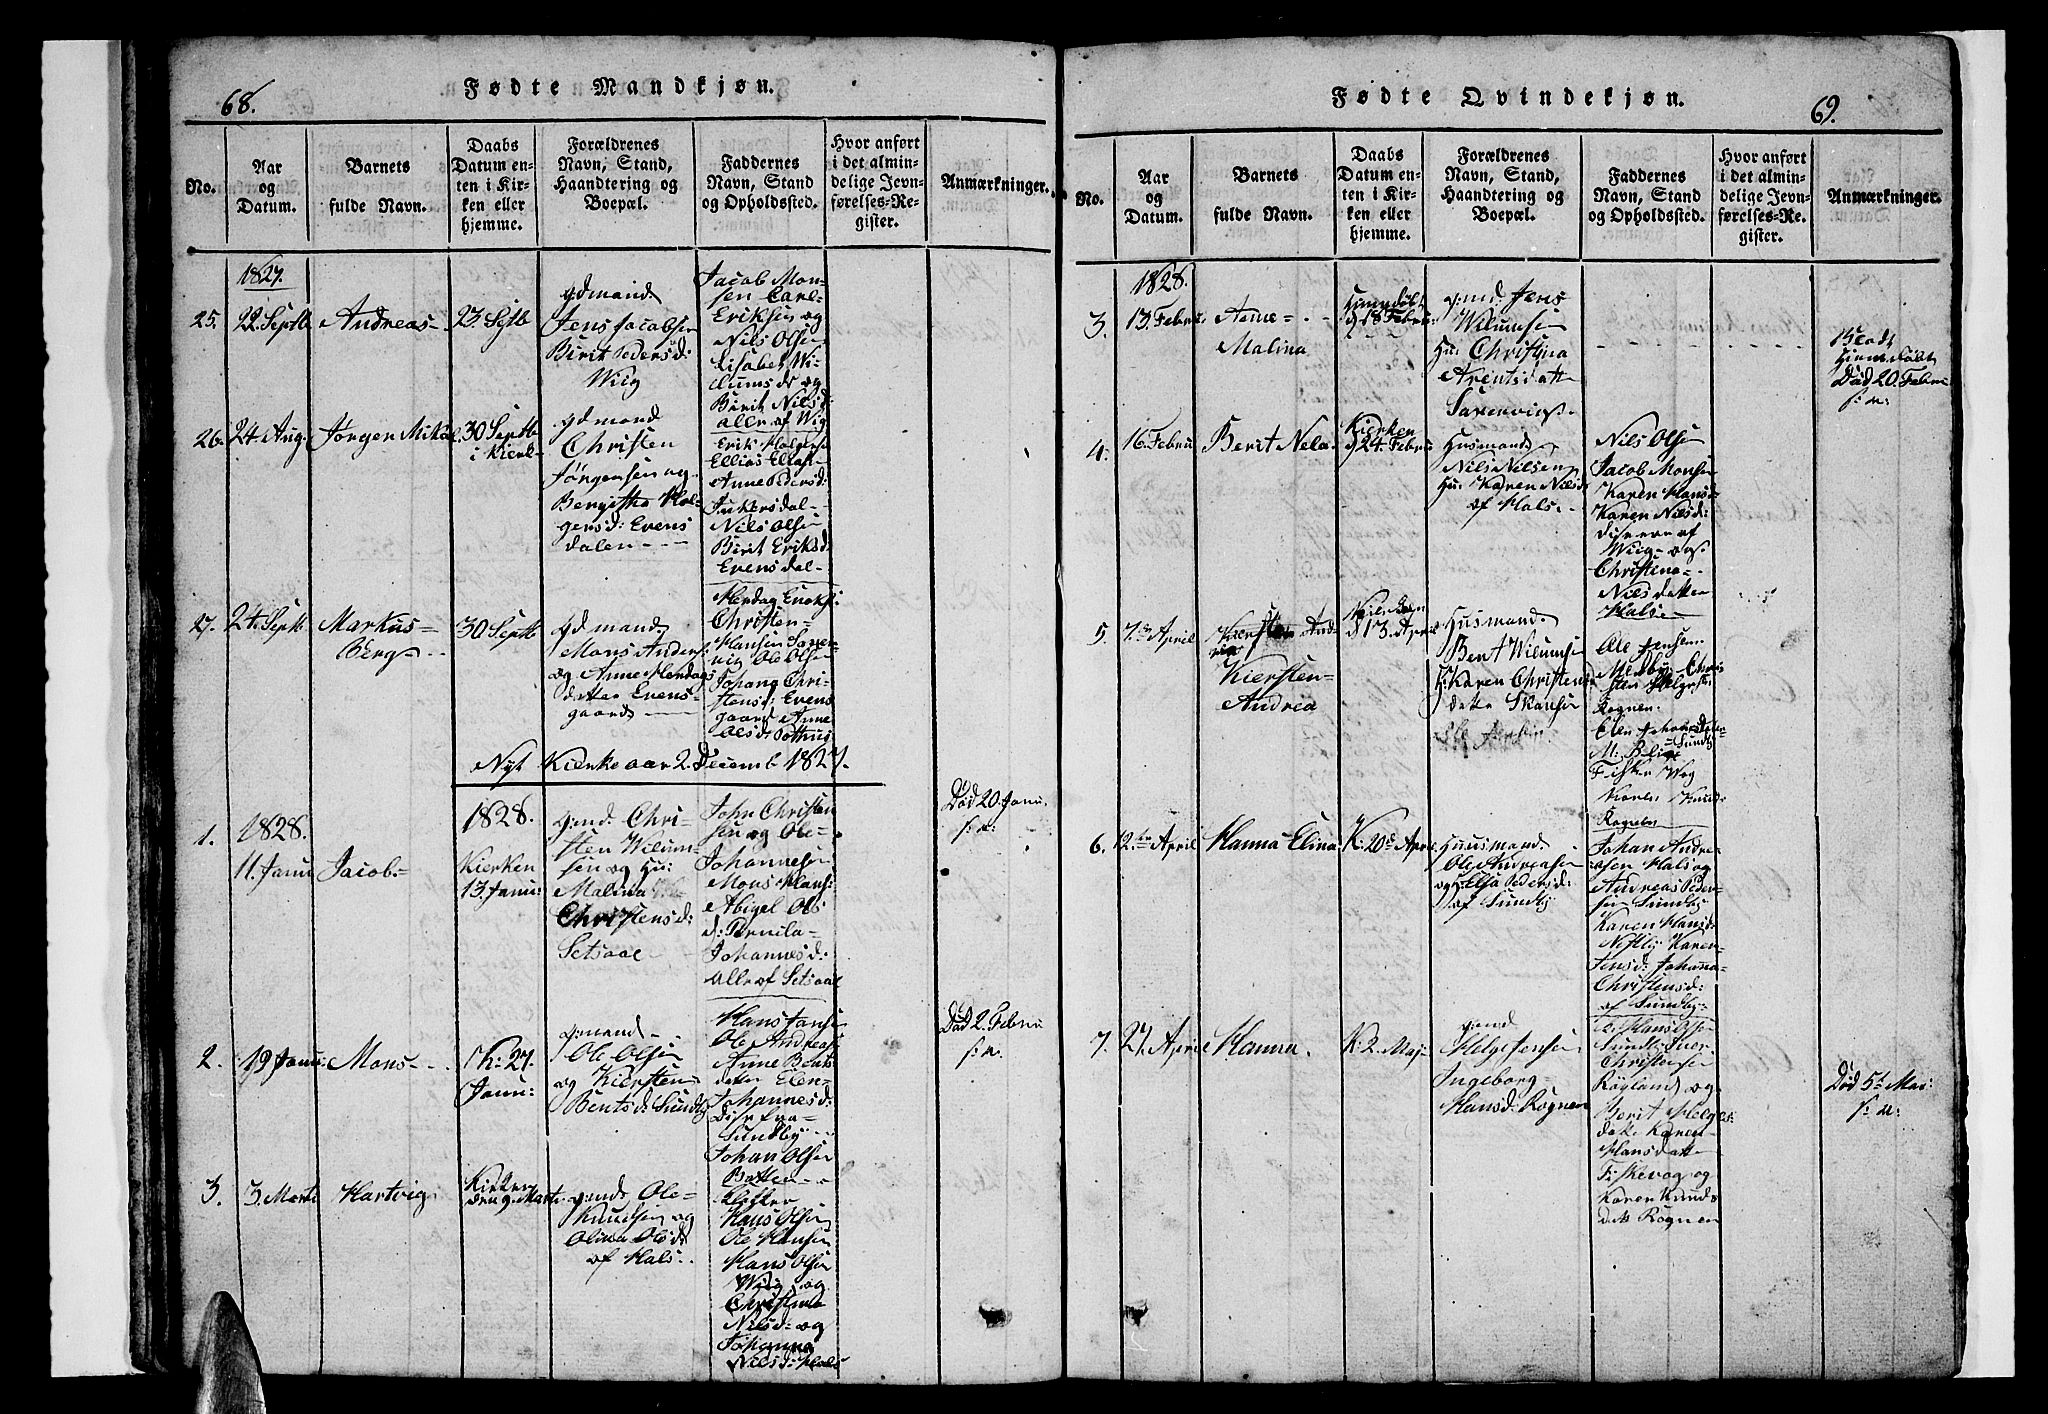 68.
Fødte Mandkjøn.
No.
Aar
og
Datum.
Barnets
fulde Navn.
Daabs
Datum en-
ten i Kir-
ken eller
hjemme.
Forældrenes
Navn, Stand,
Haandtering og
Boepæl.
Faddernes
Navn, Stand
og Opholdssted.
Hvor anført
i det almin-
delige Jevn-
førelses-Re-
gister.
Anmærkninger.
1827.
25.
22. Septb
Andreas
23. Septb
Gdmand
Jens Jacobsen
Berit Peders d:
Wiig
Jacob Mon-
sen Carl
Eriksen og
Nils Olsen
Lisabet Wi-
lumsd: og
Berit Nils d:
alle af Wiig
26.
24. Aug.
Jørgen Mikal
30 Septb
i Kierk
Gdmand
Christen
Jørgensen og
Bergitha Hol-
gersd: Evens
dalen
Erik Holgersen
Ellias
Anne Pedersd:
Junkersdal
Nils Olsen
Berit Eriksd:
Evensdal
27.
24. Septb
Markus
Berg
30 Septb
Gdmand
Mons Anders:
og Anne Herdags
datter Evens-
gaard
Herdag Enoks:
Christen
Hansen Saxen-
vig Ole Olsen
Johana Chri-
stensd: Evens
gaard Anne
Olsd: Pothus
Nyt Kierkeaar 2. Decemb 1827.
1.
1828.
11. Janu
Jacob
1828.
Kierken
13. Janu:
Gmd. Chri-
sten Wilum-
sen og Hu:
Malina
Christens d:
Setsaae
John Christen
sen og Ole
Johannesen
Mons Hans:
Abigel Ols
d: Pernila
Johannesd:
alle af Setsaae
Død 20. Janu.
s: a:
2.
19 Janu:
Mons
K: 27.
Janu:
Gmand
Ole Olsen
og Kiersten
Bentsd: Sundby
Hans Jansen
Ole Andreas
Anne Bents
datter Elen
Johannesd:
Disse fra
Sundby
Johan Olsen
Botten
Død 2. Febru
s: a.
3.
3. Marti
Hartvig
Kirken
den 9. Marti
Gmd Ole
Knudsen og
Olina Olsd:
af Hals
Klokker
Hans Olsen
Ole Hansen
Hans Olsen
Wiig og
Christina
Nilsd: og
Johanna
Nilsd: Hals
69.
Fødte Qvindekjøn.
No.
Aar
og
Datum.
Barnets
fulde Navn.
Daabs
Datum en-
ten i Kir-
ken eller
hjemme.
Forældrenes
Navn, Stand,
Haandtering og
Boepæl.
Faddernes
Navn, Stand
og Opholdssted.
Hvor anført
i det almin-
delige Jevn-
førelses-Re-
gister.
Anmærkninger.
1828.
3.
13. Febru
Anne
Malina
Hiemdøbt
d 18 Febru
Gmd. Jens
Wilumsen
Hu: Christina
Arentsdatt
Saxenvig
Hiemdøbt
Død 20. Febru
s: a:
4.
16. Febru
Berit Nela
Kierken
d 24. Febru
Husmand
Nils Nilsen
Hu: Karen Nils d:
af Hals
Nils Olsen
Jacob Monsen
Karen Hansd:
Karen Nilsd:
disse ere af
Wiig og
Christena
Nilsdatter
Hals
5.
7. April
Kiersten And-
rea
Kiersten
Andrea
d 13. April
Husmand
Bent Wilumsen
H: Karen Christens
datter Skansen
Ole Jensen
Medby Chri
sten Helges:
Rognen
Elen Johans Datter
M: Sundby
Fiskevog
Karen Knud
Rognen
6.
12te April
Hanna Elina
K: 20de April
Huusmand
Ole Andreasen
og Elsa Pedersd:
af Sundby
Johan Andre-
asen Hals og
Andreas Peder
sen Sundby
Karen Hansd:
Nestby Karen
Jensd: Johana
Christensd:
af Sundby
7.
27. April
Hanna
K: 2. Maj
Gmd
Helge Jensen
Ingeborg
Hansd: Rognen
Hans Olsen
Sundby Iver
Christensen
Røgland og
Berit Helges
datt: Karen
Hansdatt
Fiskevog og
Karen Knuds
datt: Rognen
Død 5t Maj:
s: a: